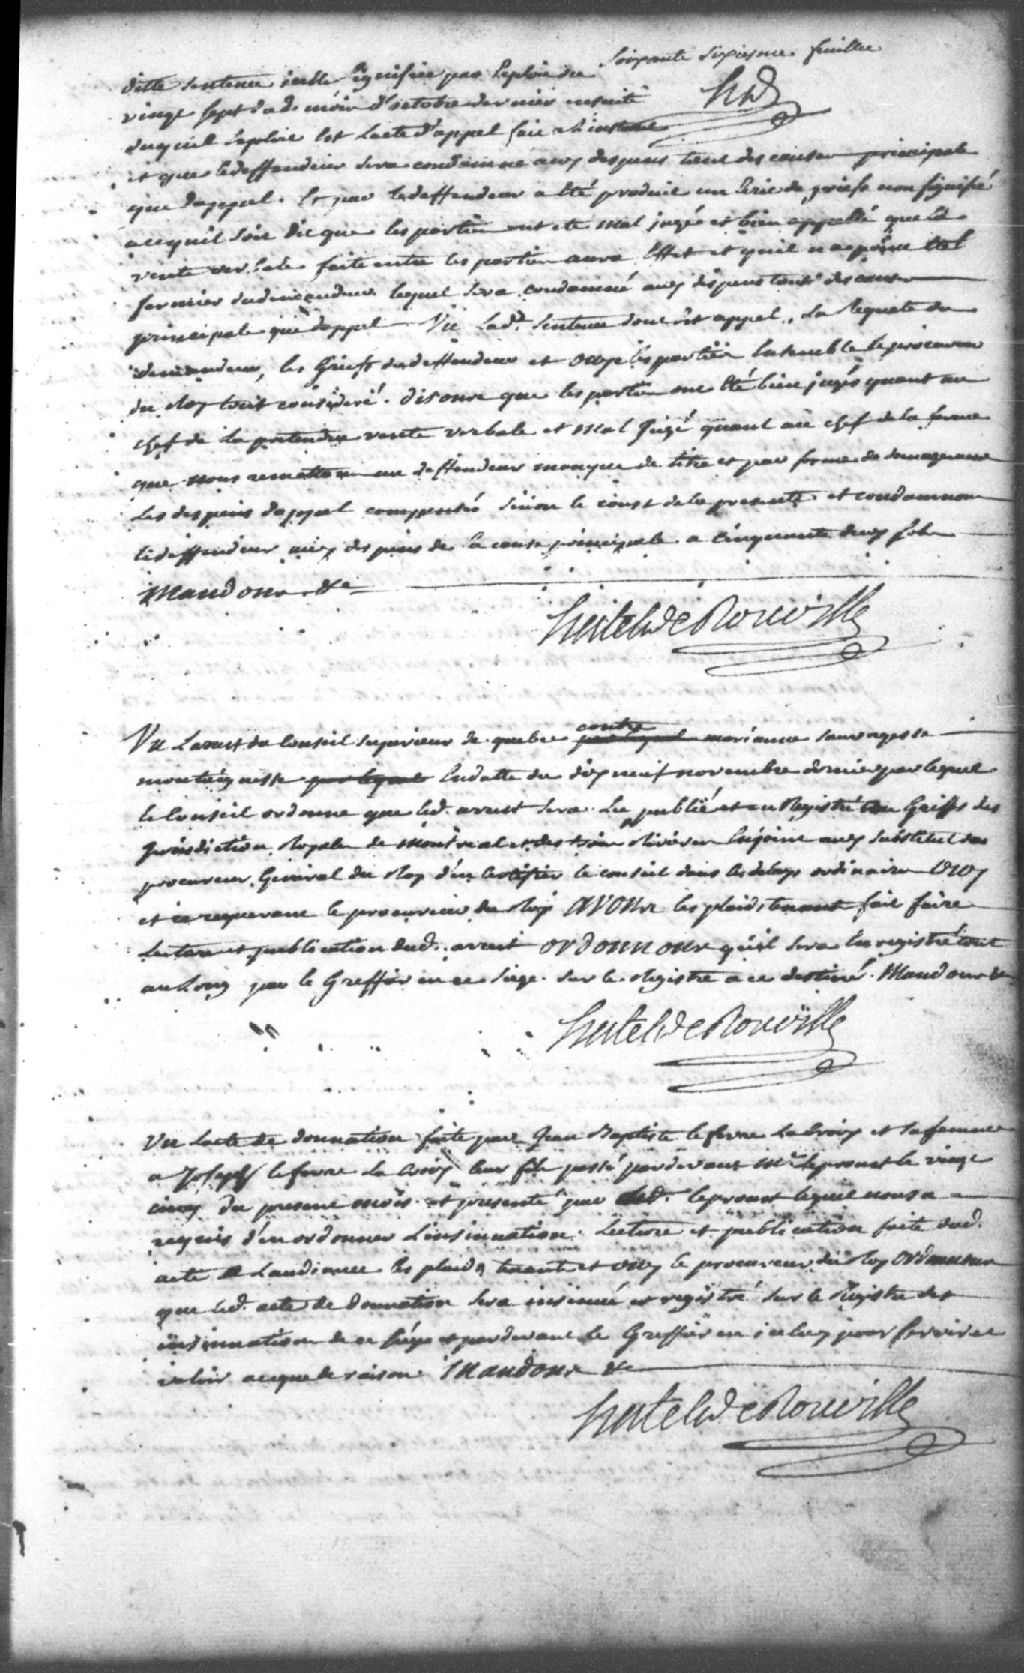 Soixante Sixiesme feuillee
ditte sentence icelle signifiée par Exploit du
vingt sept dud. mois d'octobre dernier ensuite
duquel Exploit est Lacte d'appel fait
et que le deffendeur sera condamné aux despens tant des causes principale
que dappel. Et par le deffendeur a été produit un Ecrit de griefs non signifié
a ce quil soit dit que les parties ont été mal jugés et bien appellé que la
vente verbale faite entre les parties aura Effet et quil
fermier du demandeur lequel sera condamné aux dépens tant des causes
principale que dappel Vu lad. sentence dont est appel, La Requete du
demandeur, les Griefs du deffendeur et ouye les parties Ensemble le procureur
du Roy tout considéré. disons que les parties ont été bien jugés quant au
chef de la pretendue vente verbale et mal Jugé quant au chef de la ferme
que nous remettons au deffendeur manque de titre et par forme de
les despens dappel compensés sinon le coust de la presente et condamnons
le deffendeur aux despens de la cause principale a cinquante deux sols
Mandons &c
Hertel de Rouville
Vu Larrest du Conseil Superieur de quebec contre marianne sauvagesse
montagnesse En datte du dix neuf novembre dernier par lequel
le Conseil ordonne que led. arrest sera Lu publié et enRegistré au Greffe des
Jurisdiction Royale de Montreal et des trois Rivieres Enjoint aux Substitut du
procureur General du Roy d'en certifier le conseil dans les delays ordinaire Ouy
et ce requerant le procureur du Roy AVONS les plaids tenant fait faire
Lecture et publication dud. arrest ORDONNONS qu'il sera Enregistré tout
au Long par le Greffier en ce siege sur le Registre a ce destiné. Mandons &c
Hertel de Rouville
Vu Lacte de donnation faite par Jean Baptiste lefevre La Croix et sa femme
a Joseph lefevre La Croix leur fils passé pardevant Me. Leproust le vingt
cinq du present mois et presenté par led. Leproust lequel nous a
requis d'en ordonner L'insinuation. Lecture et publication faite dud.
acte a Laudiance les plaids tenant et ouy le procureur du Roy Ordonnons
que led. acte de Donnation sera insinué et registré sur le Registre des
insinuation de ce siege pardevant le Greffier en iceluy pour servir et
valoir ce que de raison Mandons &c
Hertel de Rouville